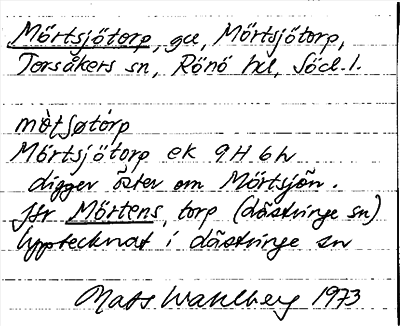 Mörtsjötorp, gd, Mörtsjötorp,
Torsåkers sn, Rönö hd, Södl.
mö̀tʃøtòrp
Mörtsjötorp ek 9H 6h
digger öster om Mörtsjön.
Jfr Mörtens, torp (Västringe sn)
Upptecknat i Västringe sn
Mats Wahlberg 1973